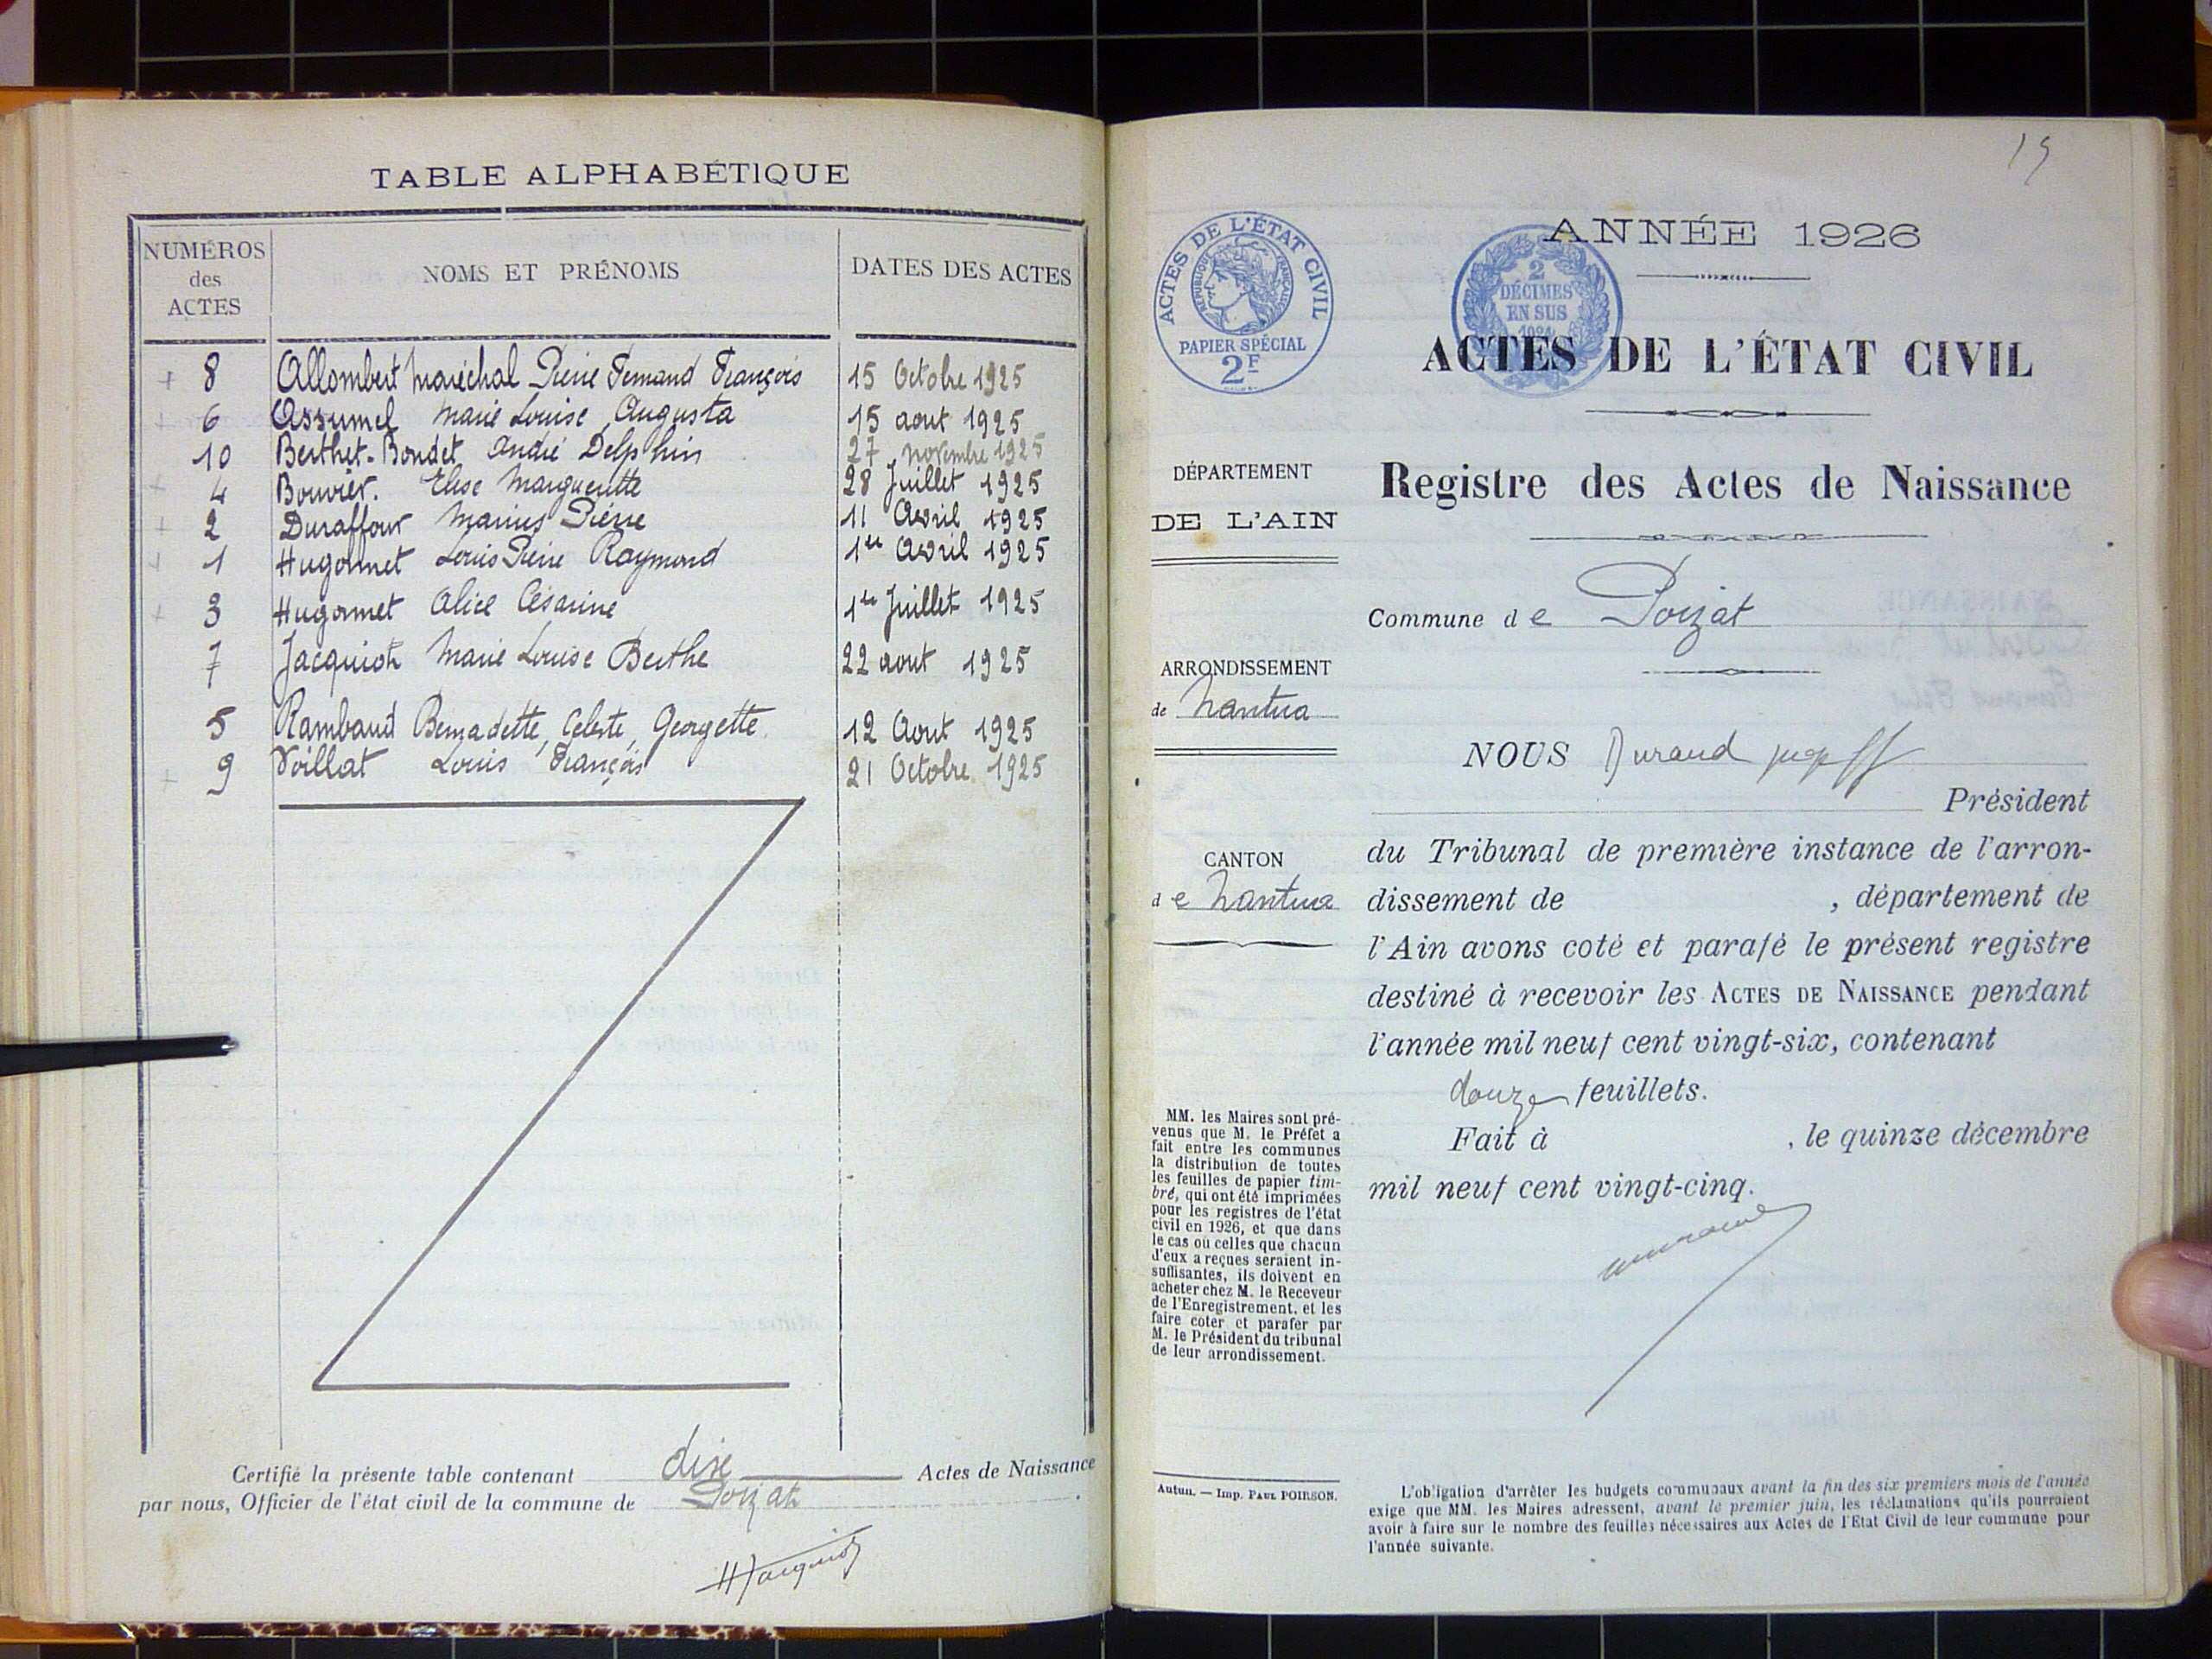 TABLE ALPHABÉTIQUE
NUMÉROS des ACTES NOMS ET PRÉNOMS DATES DES ACTES
8 Allombert Maréchal Pierre Fernand François 15 Octobre 1925
6 Assumel Marie Louise Augusta 15 aout 1925
10 Berthet-Bondet André Delphin 27 novembre 1925
4 Bouvier. Elise Marguerite 28 Juillet 1925
2 Duraffour Marius Pierre 11 Avril 1925
1 Hugonnet Louis Pierre Raymond 1er Avril 1925
3 Hugonnet Alice Césarine 1er Juillet 1925
7 Jacquiot Marie Louise Berthe 22 aout 1925
5 Rambaud Bernadette, Celeste, Georgette. 12 Aout 1925
9 Voillat Louis François 21 Octobre 1925
Certifié la présente table contenant dix Actes de Naissance
par nous, Officier de l'état civil de la commune de Poizat.
HJacquiot
ACTES DE L'ÉTAT CIVIL
RÉPUBLIQUE FRANÇAISE
PAPIER SPÉCIAL
2F
2
DÉCIMES
EN SUS
1924
ANNÉE 1926
ACTES DE L'ÉTAT CIVIL
DÉPARTEMENT
DE L'AIN
Registre des Actes de Naissance
Commune de Poizat
ARRONDISSEMENT
de Nantua
CANTON
de Nantua
NOUS Durand
Président
du Tribunal de première instance de l'arron-
dissement de , département de
l'Ain avons coté et parafé le présent registre
destiné à recevoir les ACTES DE NAISSANCE pendant
l'année mil neuf cent vingt-six, contenant
douze feuillets.
Fait à , le quinze décembre
mil neuf cent vingt-cinq.
MM. les Maires sont pré-
venus que M. le Préfet a
fait entre les communes
la distribution de toutes
les feuilles de papier tim-
bré, qui ont été imprimées
pour les registres de l'état
civil en 1926, et que dans
le cas où celles que chacun
d'eux a reçues seraient in-
suffisantes, ils doivent en
acheter chez M. le Receveur
de l'Enregistrement, et les
faire coter et parafer par
M. le Président du tribunal
de leur arrondissement.
Autun. — Imp. PAUL POIRSON.
L'obligation d'arrêter les budgets communaux avant la fin des six premiers mois de l'année
exige que MM. les Maires adressent, avant le premier juin, les réclamations qu'ils pourraient
avoir à faire sur le nombre des feuilles nécessaires aux Actes de l'Etat Civil de leur commune pour
l'année suivante.